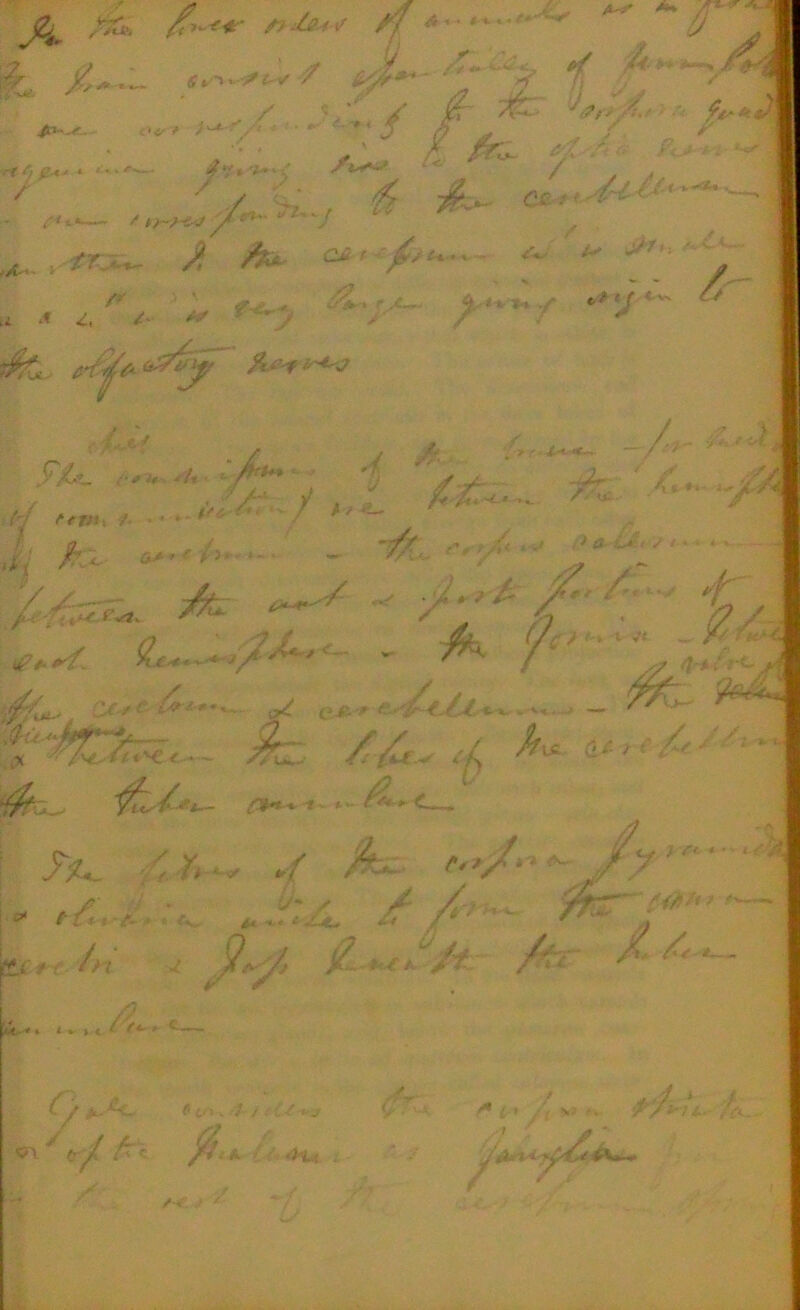 In the lower orders of animals as in fishes
the brain consists essentially of four lobes
one corresponding to the corpora quad
rigemina giving rise to the optic nerves
one corresponding to the cerebellum
another to the cerebrum it is small
it is very large giving origin to
the olfactory nerves
chief
The commissures of the brain - for
of communication) are between the hemisphe
of the cerebrum - the corpus callosum
between the ant & post portions of
each hemisphere - the fornix - betwe
the cerebrum & cerebellum - the
valve
& between the lobes of the cerebellum
the tuber annulare
The fibres of the corpora pyramida
& olivaria unite to form the crura
cerebri & pass beneath the tuber
annulare
Gall considers the corpora striata
optic thalami as ganglia
the rest of the cerebrum